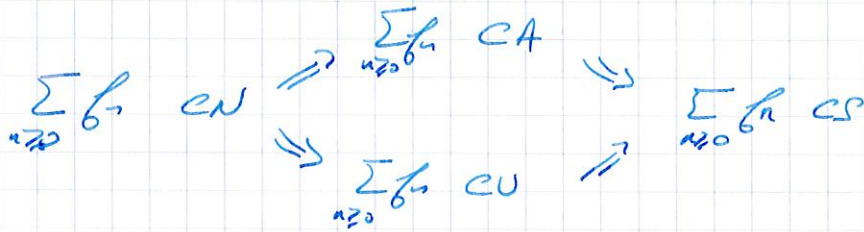 ∑_{n≥0} fn CA
∑_{n≥0} fn CN ⇒ ⇒ ∑_{n≥0} fn CS
∑_{n≥0} fn CU